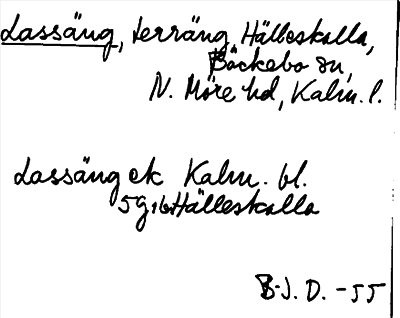 Lassäng, terräng, Hälleskalla,
Bäckebo sn,
N. Möre hd, Kalm. l.
Lassäng ek Kalm. bl.
5g, b, Hälleskalla
B.J.D. -55